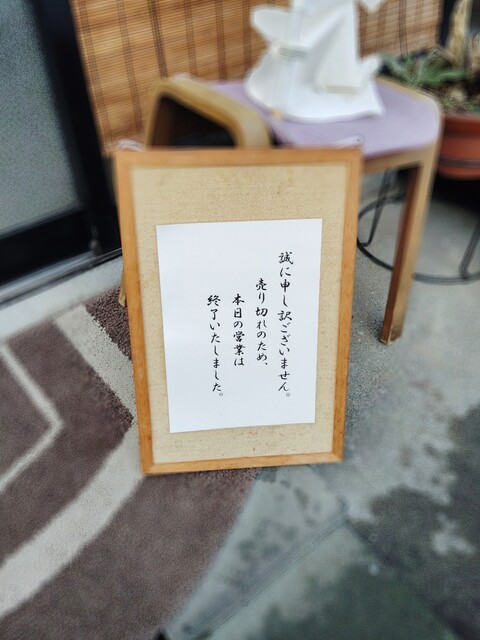 誠に申し訳ございません。
売り切れのため、
本日の営業は
終了いたしました。